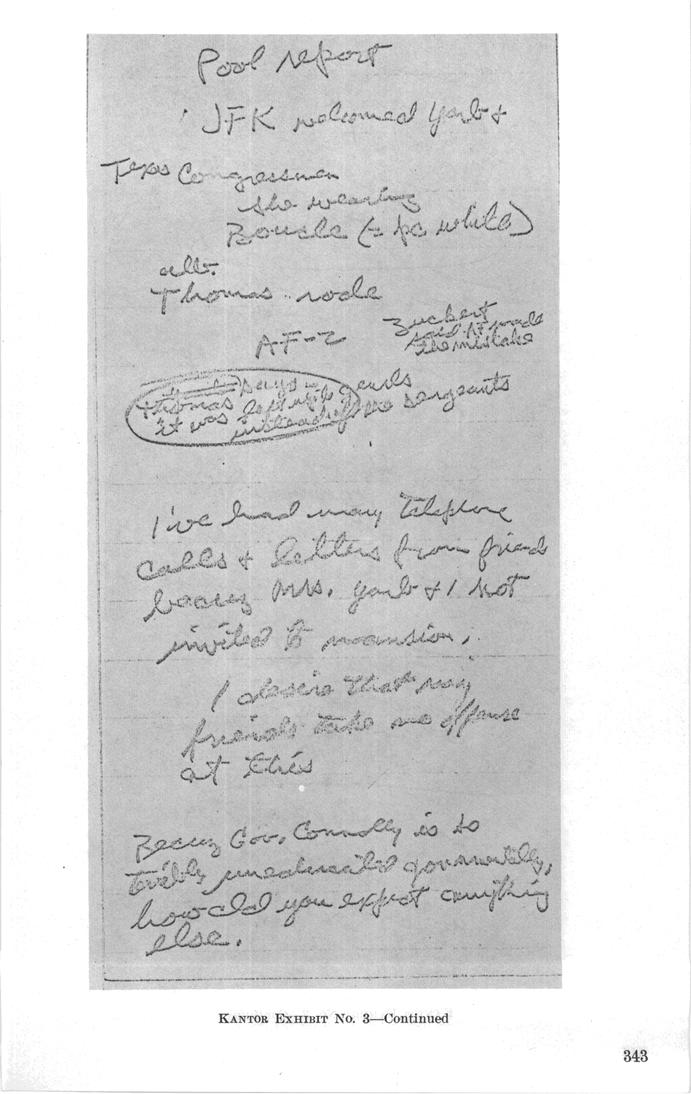 Pool report
JFK welcomed Yarb +
Texas Congressmen
she wearing
Boucle (= pc while)
alb.
Thomas rode
AF-2
Zuckert
said AF made
the mistake
Thomas says
it was left up to genrls
instead of the sergeants
I've had many telephone
calls + letters from friends
becauz Mrs. Yarb + I not
invited to mansion.
I desire that my
friends take no offense
at this
Becauz Gov. Connally is so
terribly uneducated govmentally,
how cld you expect anything
else.
KANTOR EXHIBIT No. 3—Continued
343